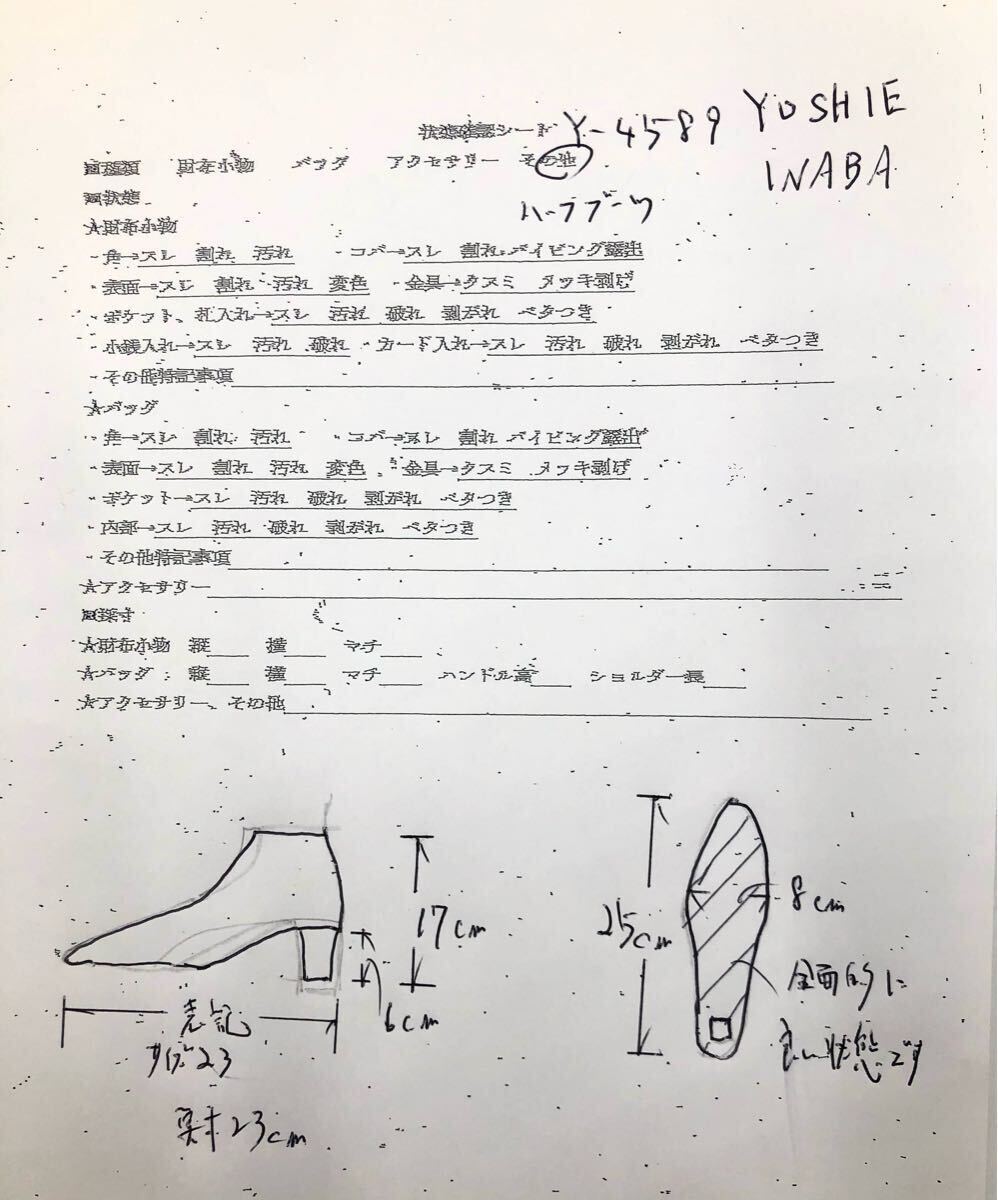 状態確認シート Y-4589 YOSHIE
INABA
■種類 財布小物 バッグ アクセサリー その他
ハーフブーツ
■状態
☆財布小物
・角→スレ 割れ 汚れ ・コバ→スレ 割れ パイピング露出
・表面→スレ 割れ 汚れ 変色 ・金具→クスミ メッキ剥げ
・ポケット、札入れ→スレ 汚れ 破れ 剥がれ ベタつき
・小銭入れ→スレ 汚れ 破れ ・カード入れ→スレ 汚れ 破れ 剥がれ ベタつき
・その他特記事項
☆バッグ
・角→スレ 割れ 汚れ ・コバ→スレ 割れ パイピング露出
・表面→スレ 割れ 汚れ 変色 ・金具→クスミ メッキ剥げ
・ポケット→スレ 汚れ 破れ 剥がれ ベタつき
・内部→スレ 汚れ 破れ 剥がれ ベタつき
・その他特記事項
☆アクセサリー
■採寸
☆財布小物 縦 横 マチ
☆バッグ: 縦 横 マチ ハンドル高 ショルダー長
☆アクセサリー、その他
17cm
6cm
表記
サイズ23
実寸23cm
25cm
8cm
全面的に
良い状態です